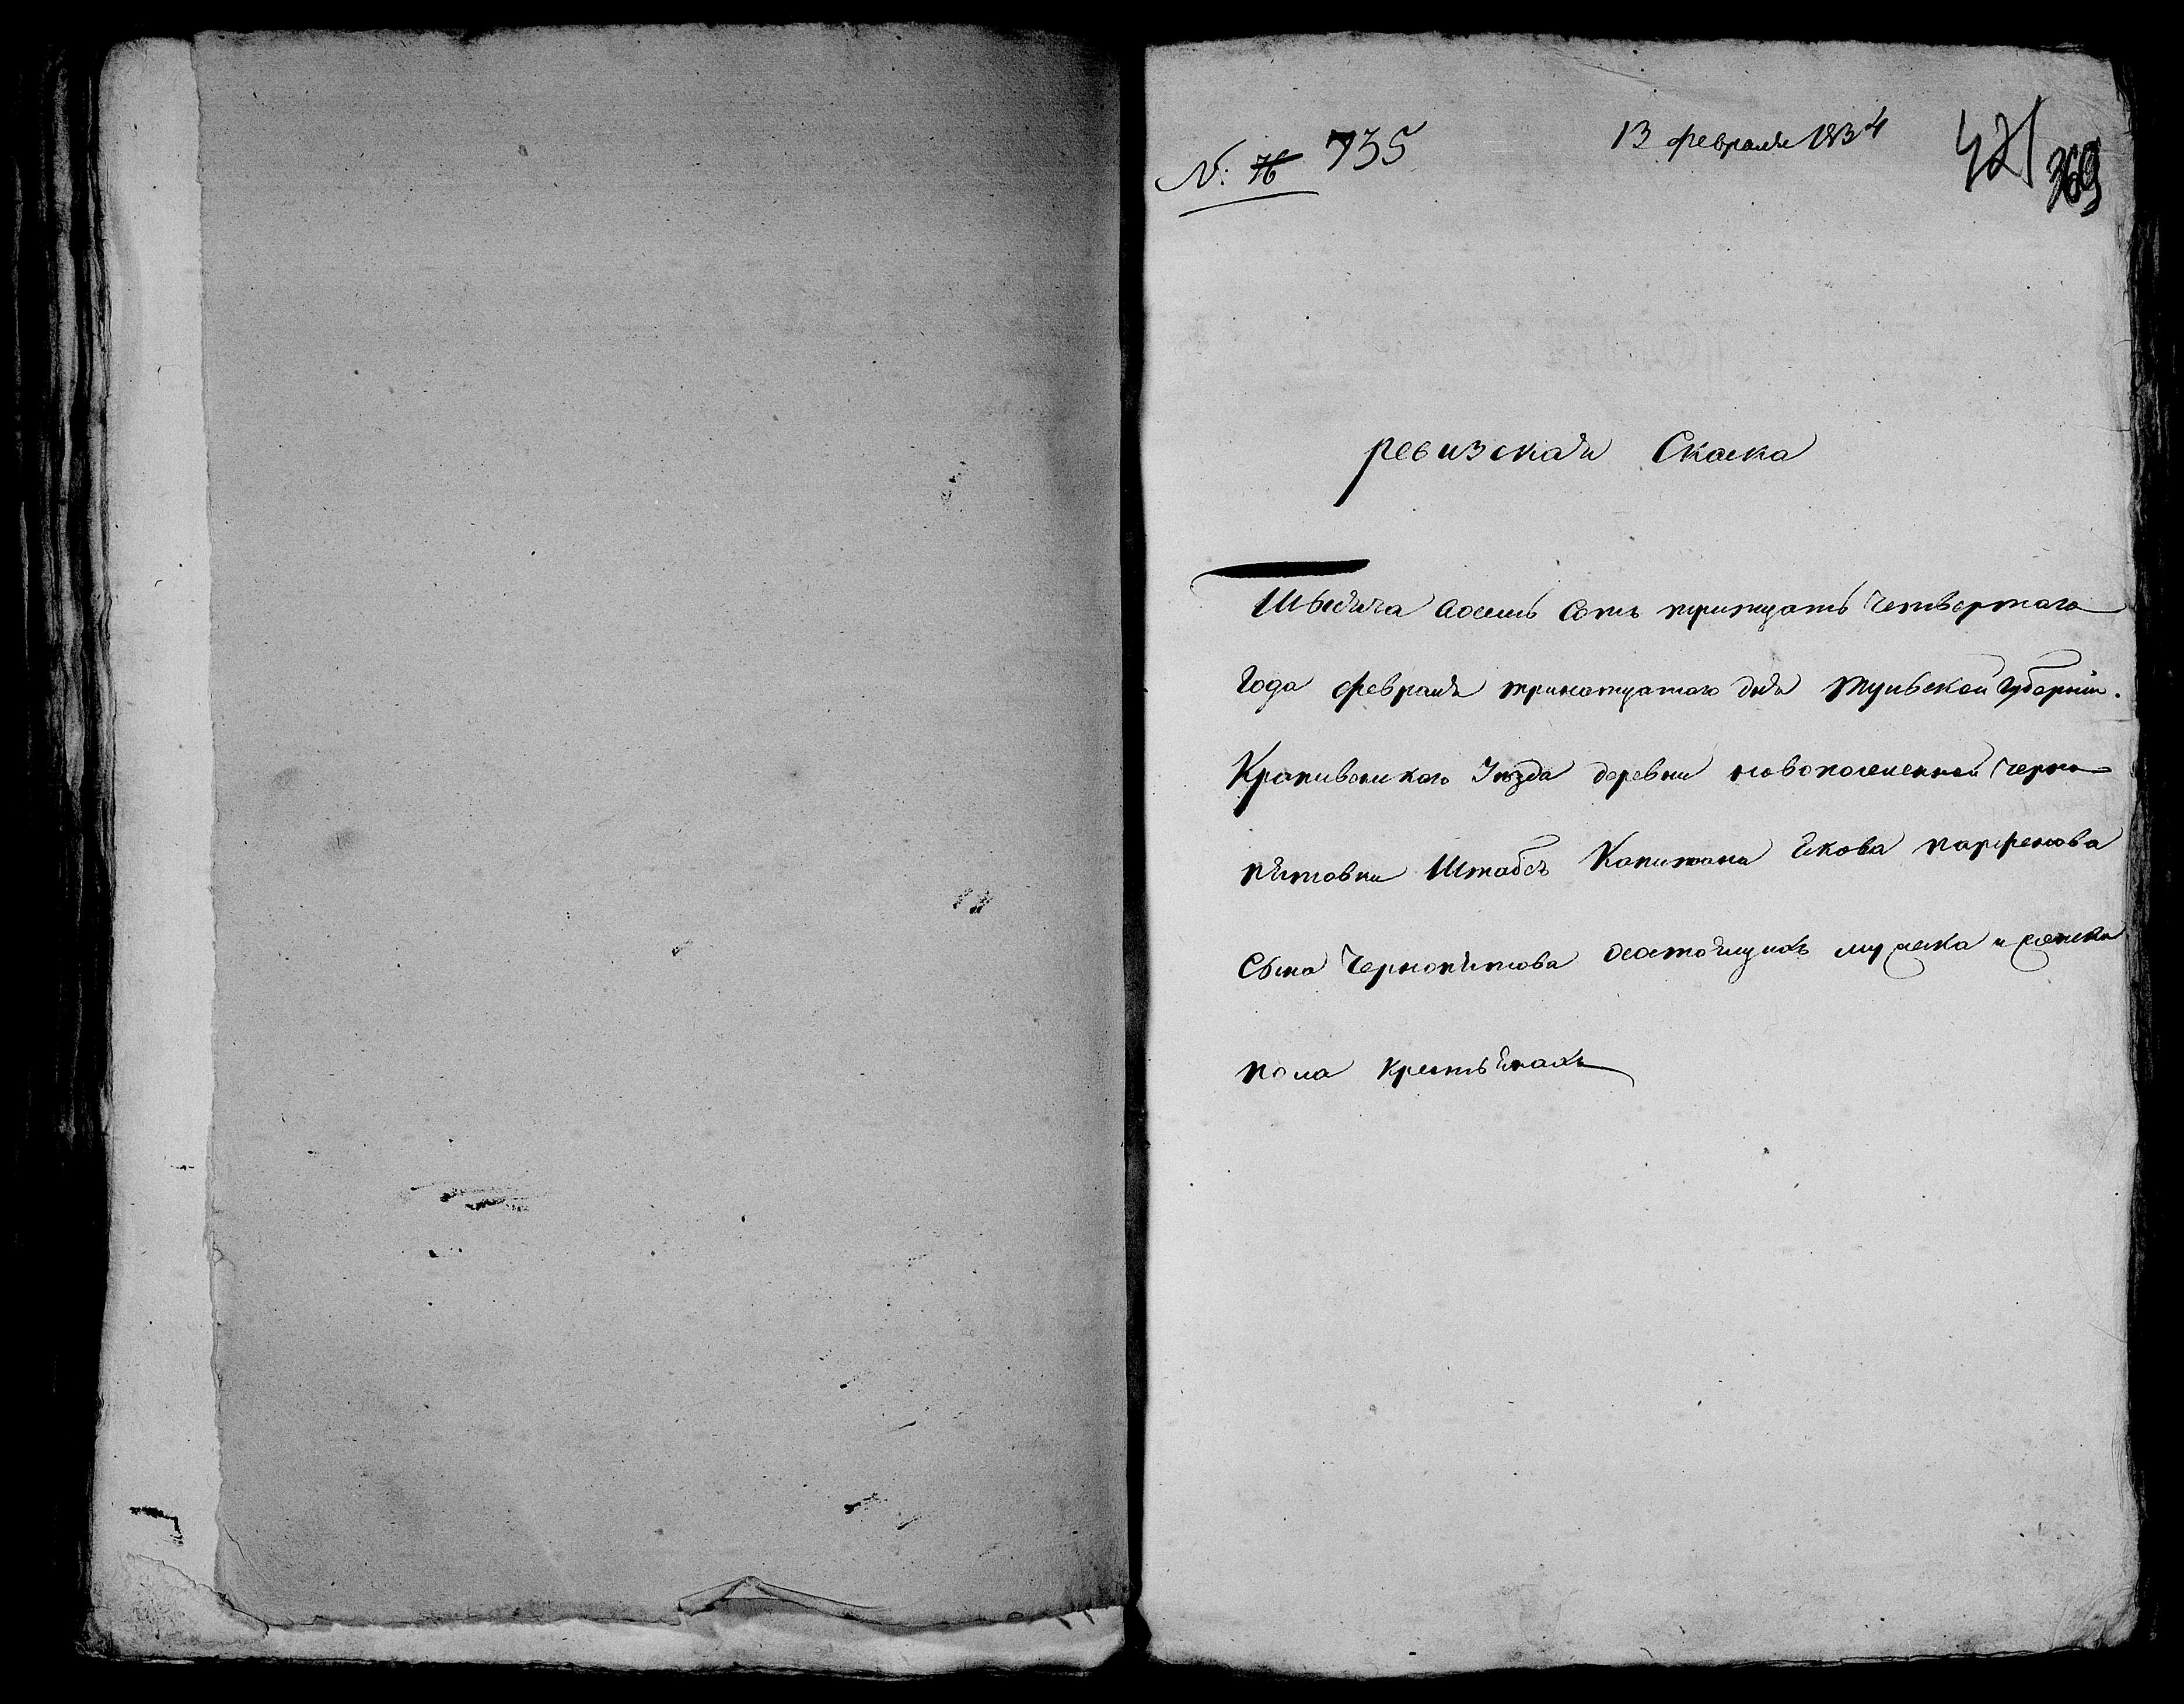 N: 76 735
13 февраля 1834
421
369
ревизская Скаска
Тысяча восемь Сотъ тритцать четвертаго
Года февраля тринатцатаго дня тульской губерніи.
Крапивенскаго Уезда деревни новопоселенной Черно-
пятовки Штабсъ Капитана Якова парфенова
Сына Чернопятова состоящихъ мужеска и женска
пола крестьянахъ